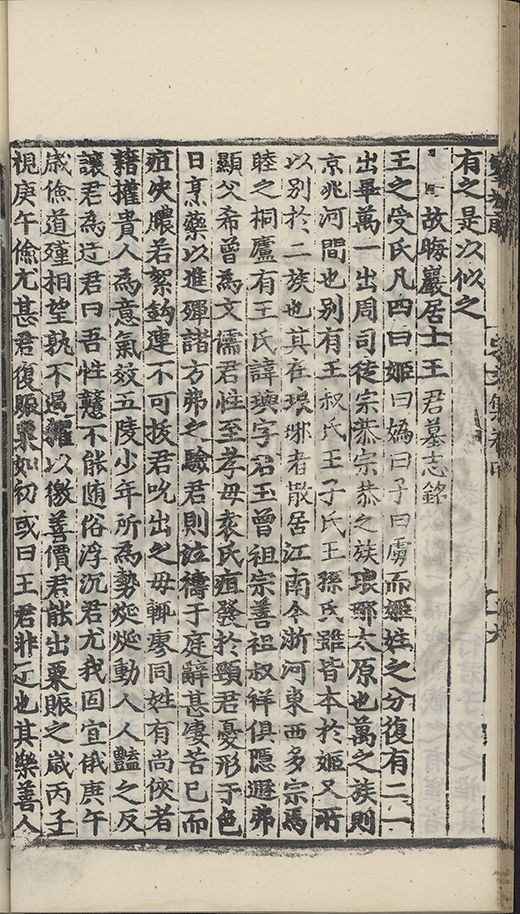 有之是以似之
故晦巖居士王君墓志銘
王之受氏凡四曰姬曰媯曰子曰虜而姬姓之分復有二一
出畢萬一出周司徒宗恭宗恭之族瑯琊太原也萬之族則
京兆河間也别有王叔氏王子氏王孫氏雖皆本於姬又所
以别於二族也其在琅琊者散居江南今浙河東西多宗焉
睦之桐廬有王氏諱璵字君玉曾祖宗善祖叔祥俱隱遯弗
顯父希曾為文儒君性至孝母袁氏疽發於頸君憂形于色
日烹藥以進殫諸方弗之驗君則泣禱于庭辭甚悽苦已而
疽決膿若絮鈎連不可拔君吮出之母輒瘳同姓有尚俠者
藉權貴人為意氣效五陵少年所為勢烻烻動人人豔之反
讓君為迂君曰吾性戇不能随俗浮沉君尤我固宜俄庚午
歲儉道殣相望孰不遏糴以徼善價君能出粟賑之歲丙子
視庚午儉尤甚君復賑粟如初或曰王君非迂也其樂善人